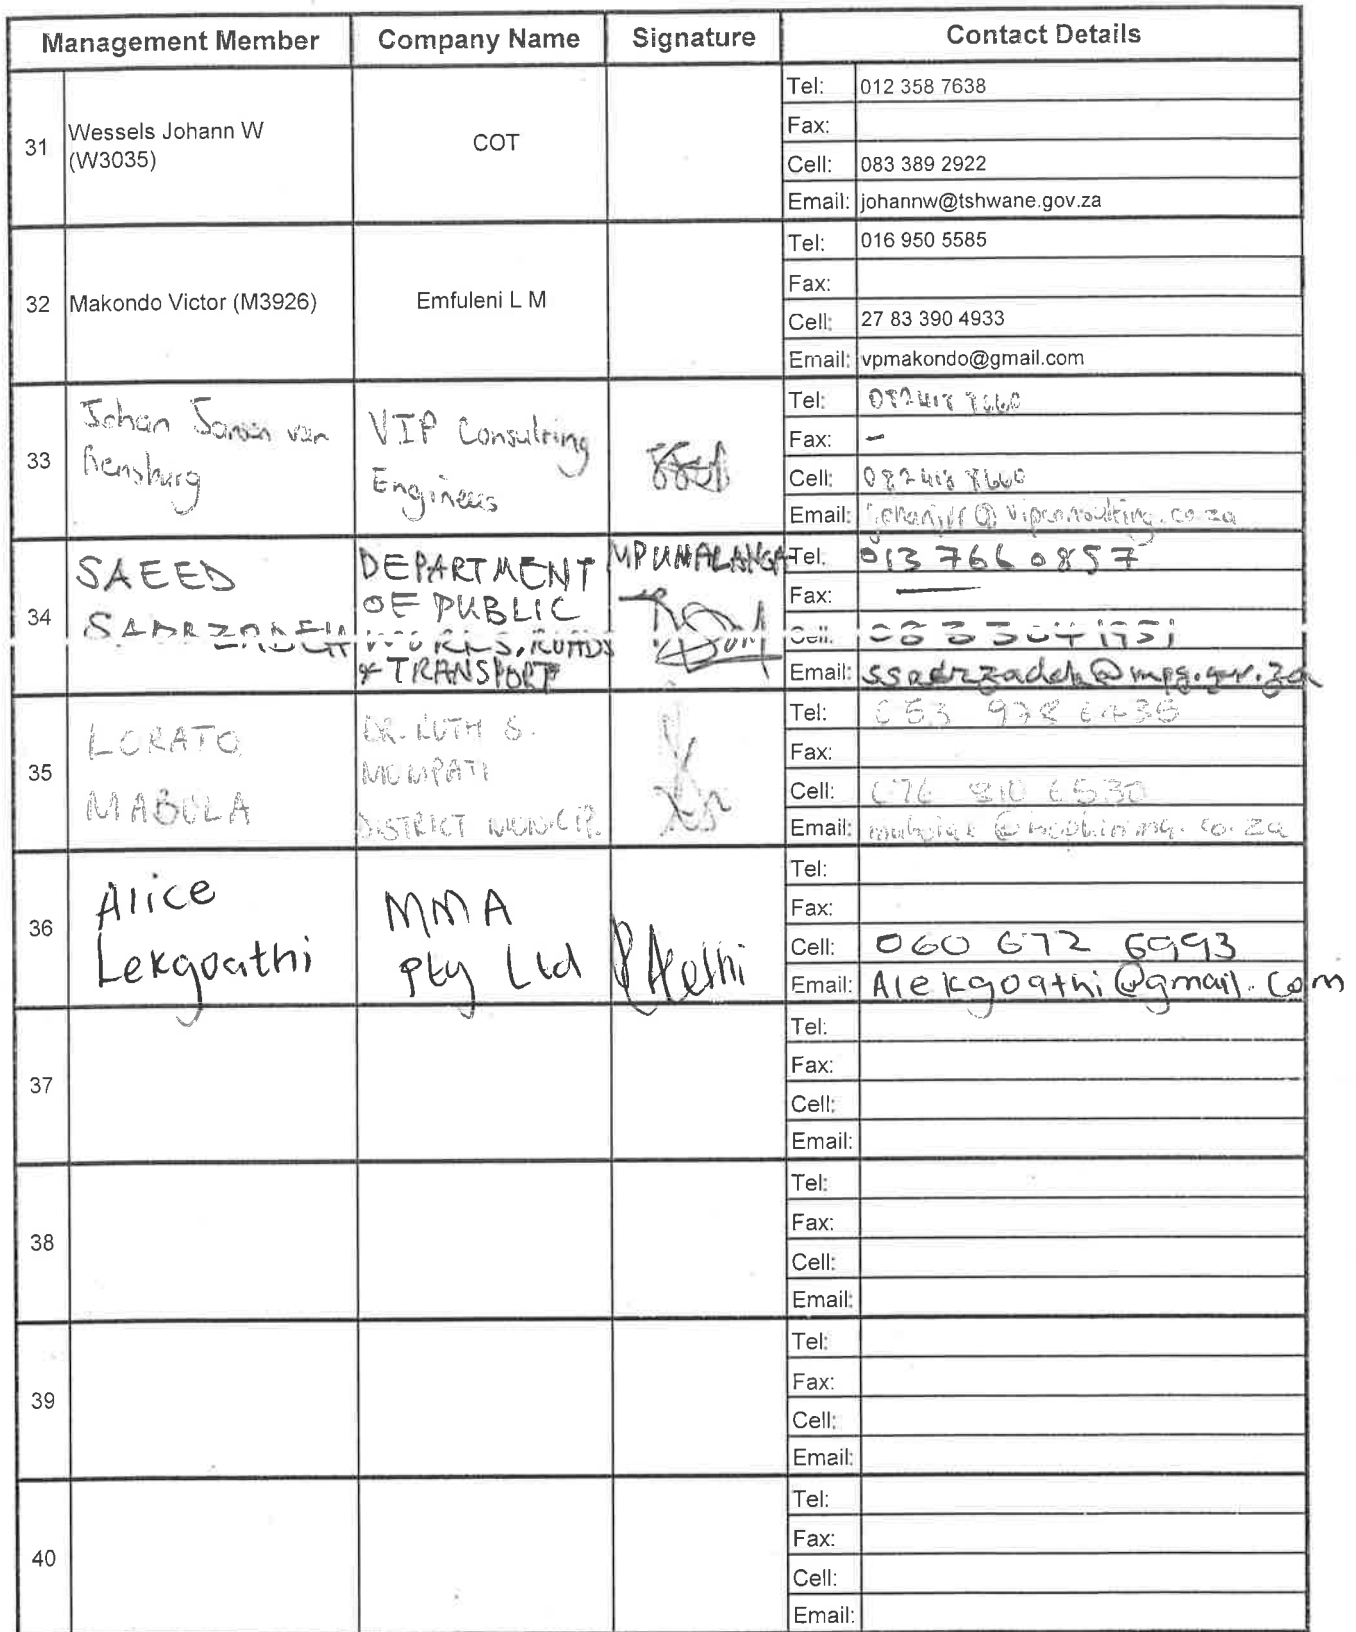 Management Member Company Name Signature Contact Details
31 Wessels Johann W (W3035) COT
Tel: 012 358 7638
Fax:
Cell: 083 389 2922
Email: johannw@tshwane.gov.za
32 Makondo Victor (M3926) Emfuleni L M
Tel: 016 950 5585
Fax:
Cell: 27 83 390 4933
Email: vpmakondo@gmail.com
33
Johan Jansen van
Rensburg
VIP Consulting
Engineers
Tel: 082 418 8660
Fax: –
Cell: 082 418 8660
Email:
34
SAEED
SADRZADEH
DEPARTMENT
OF PUBLIC
WORKS, ROADS
& TRANSPORT
MPUMALANGA
Tel. 013 766 0857
Fax: —
Cell:
Email: ssadrzadeh@mpg.gov.za
35
LORATO
MABULA
DR. RUTH S.
MOMPATI
DISTRICT MUNCIP.
Tel:
Fax:
Cell: 076 810 6530
Email:
36
Alice
Lekgoathi
MMA
Pty Ltd
Tel:
Fax:
Cell: 060 672 6993
Email: Alekgoathi@gmail.com
37
Tel:
Fax:
Cell:
Email:
38
Tel:
Fax:
Cell:
Email:
39
Tel:
Fax:
Cell:
Email:
40
Tel:
Fax:
Cell:
Email: